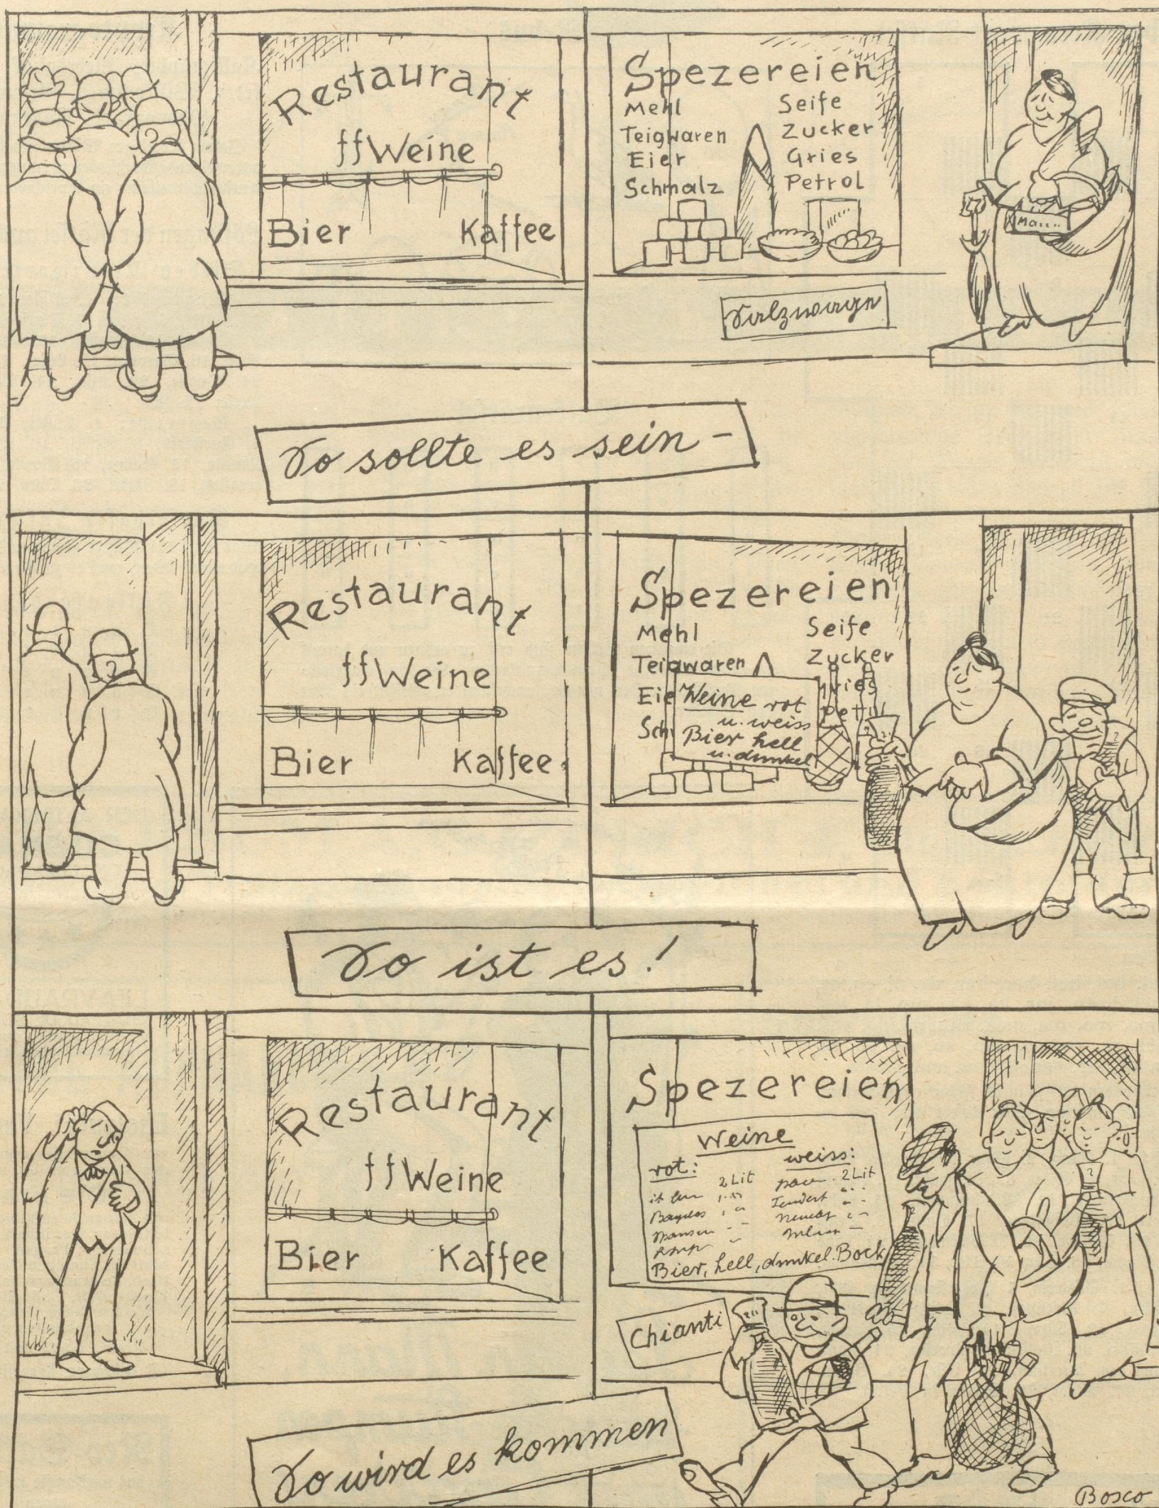 Restaurant
ff Weine
Bier Kaffee
Spezereien
Mehl Seife
Teigwaren Zucker
Eier Gries
Schmalz Petrol
So sollte es sein -
Restaurant
ff Weine
Bier Kaffee
Spezereien
Mehl Seife
Teigwaren Zucker
Eie ries
Sch Pet
Weine rot
u. weiss
Bier hell
u. dunkel
So ist es!
Restaurant
ff Weine
Bier Kaffee
Spezereien
Weine
rot: weiss:
2 Lit 2 Lit
Bier, hell, dunkel. Bock
Chianti
So wird es kommen
Bosco